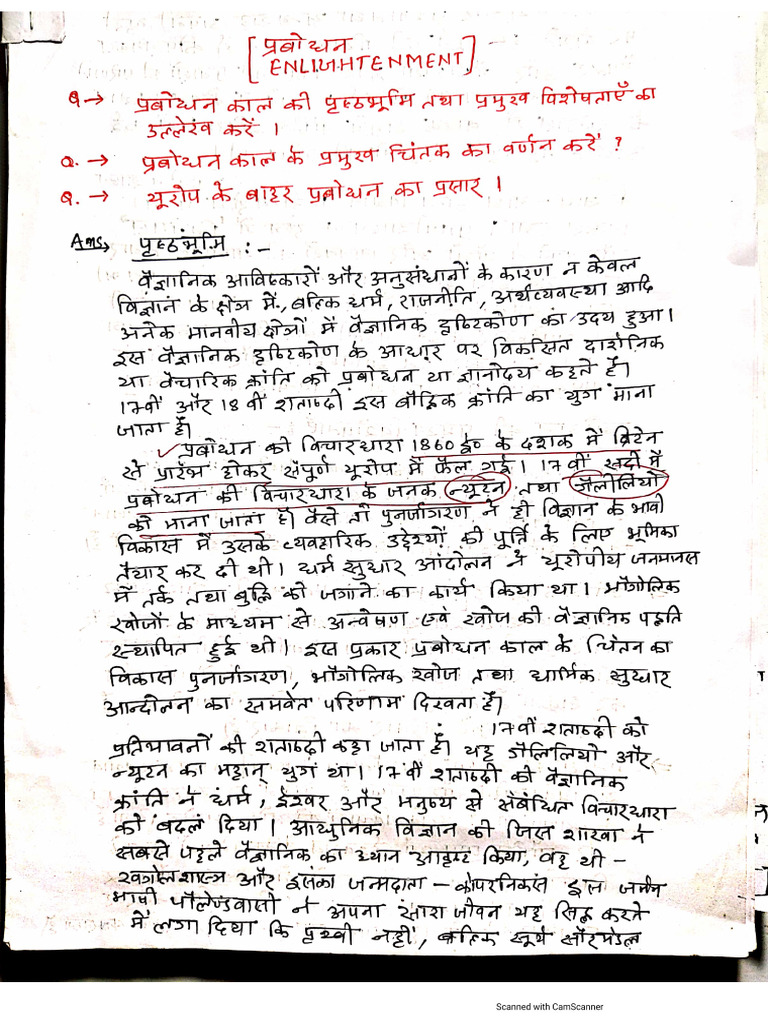 [प्रबोधन
ENLIGHTENMENT]
Q → प्रबोधन काल की पृष्ठभूमि तथा प्रमुख विशेषताएँ का
उल्लेख करें ।
Q. → प्रबोधन काल के प्रमुख चिंतक का वर्णन करें ?
Q. → यूरोप के बाहर प्रबोधन का प्रसार ।
Ans, पृष्ठभूमि :-
वैज्ञानिक आविष्कारों और अनुसंधानों के कारण न केवल
विज्ञान के क्षेत्र में, बल्कि धर्म, राजनीति, अर्थव्यवस्था आदि
अनेक मानवीय क्षेत्रों में वैज्ञानिक दृष्टिकोण का उदय हुआ।
इस वैज्ञानिक दृष्टिकोण के आधार पर विकसित दार्शनिक
या वैचारिक क्रांति को प्रबोधन या ज्ञानोदय कहते हैं।
17वीं और 18 वीं शताब्दी इस बौद्धिक क्रांति का युग माना
जाता है।
✓ प्रबोधन की विचारधारा 1860 ई० के दशक में ब्रिटेन
से प्रारंभ होकर संपूर्ण यूरोप में फैल गई। 17वीं सदी में
प्रबोधन की विचारधारा के जनक न्यूटन तथा गैलीलियो
को माना जाता है। वैसे तो पुनर्जागरण ने ही विज्ञान के भावी
विकास में उसके व्यवहारिक उद्देश्यों की पूर्ति के लिए भूमिका
तैयार कर दी थी। धर्म सुधार आंदोलन ने यूरोपीय जनमानस
में तर्क तथा बुद्धि को जगाने का कार्य किया था। भौगोलिक
खोजों के माध्यम से अन्वेषण एवं खोज की वैज्ञानिक पद्धति
स्थापित हुई थी। इस प्रकार प्रबोधन काल के चिंतन का
विकास पुनर्जागरण, भौगोलिक खोज तथा धार्मिक सुधार
आन्दोलन का समवेत परिणाम दिखता है।
17वीं शताब्दी को
प्रतिभावनों की शताब्दी कहा जाता है। यह गैलिलियो और
न्यूटन का महान् युग था। 17वीं शताब्दी की वैज्ञानिक
क्रांति ने धर्म, ईश्वर और मनुष्य से संबंधित विचारधारा
को बदल दिया। आधुनिक विज्ञान की जिस शाखा ने
सबसे पहले वैज्ञानिक का ध्यान आकृष्ट किया, वह थी -
खगोलशास्त्र और इसका जन्मदाता - कोपरनिकस इस जर्मन
भाषी पोलैण्डवासी ने अपना सारा जीवन यह सिद्ध करने
में लगा दिया कि पृथ्वी नहीं, बल्कि सूर्य सौरमंडल
Scanned with CamScanner